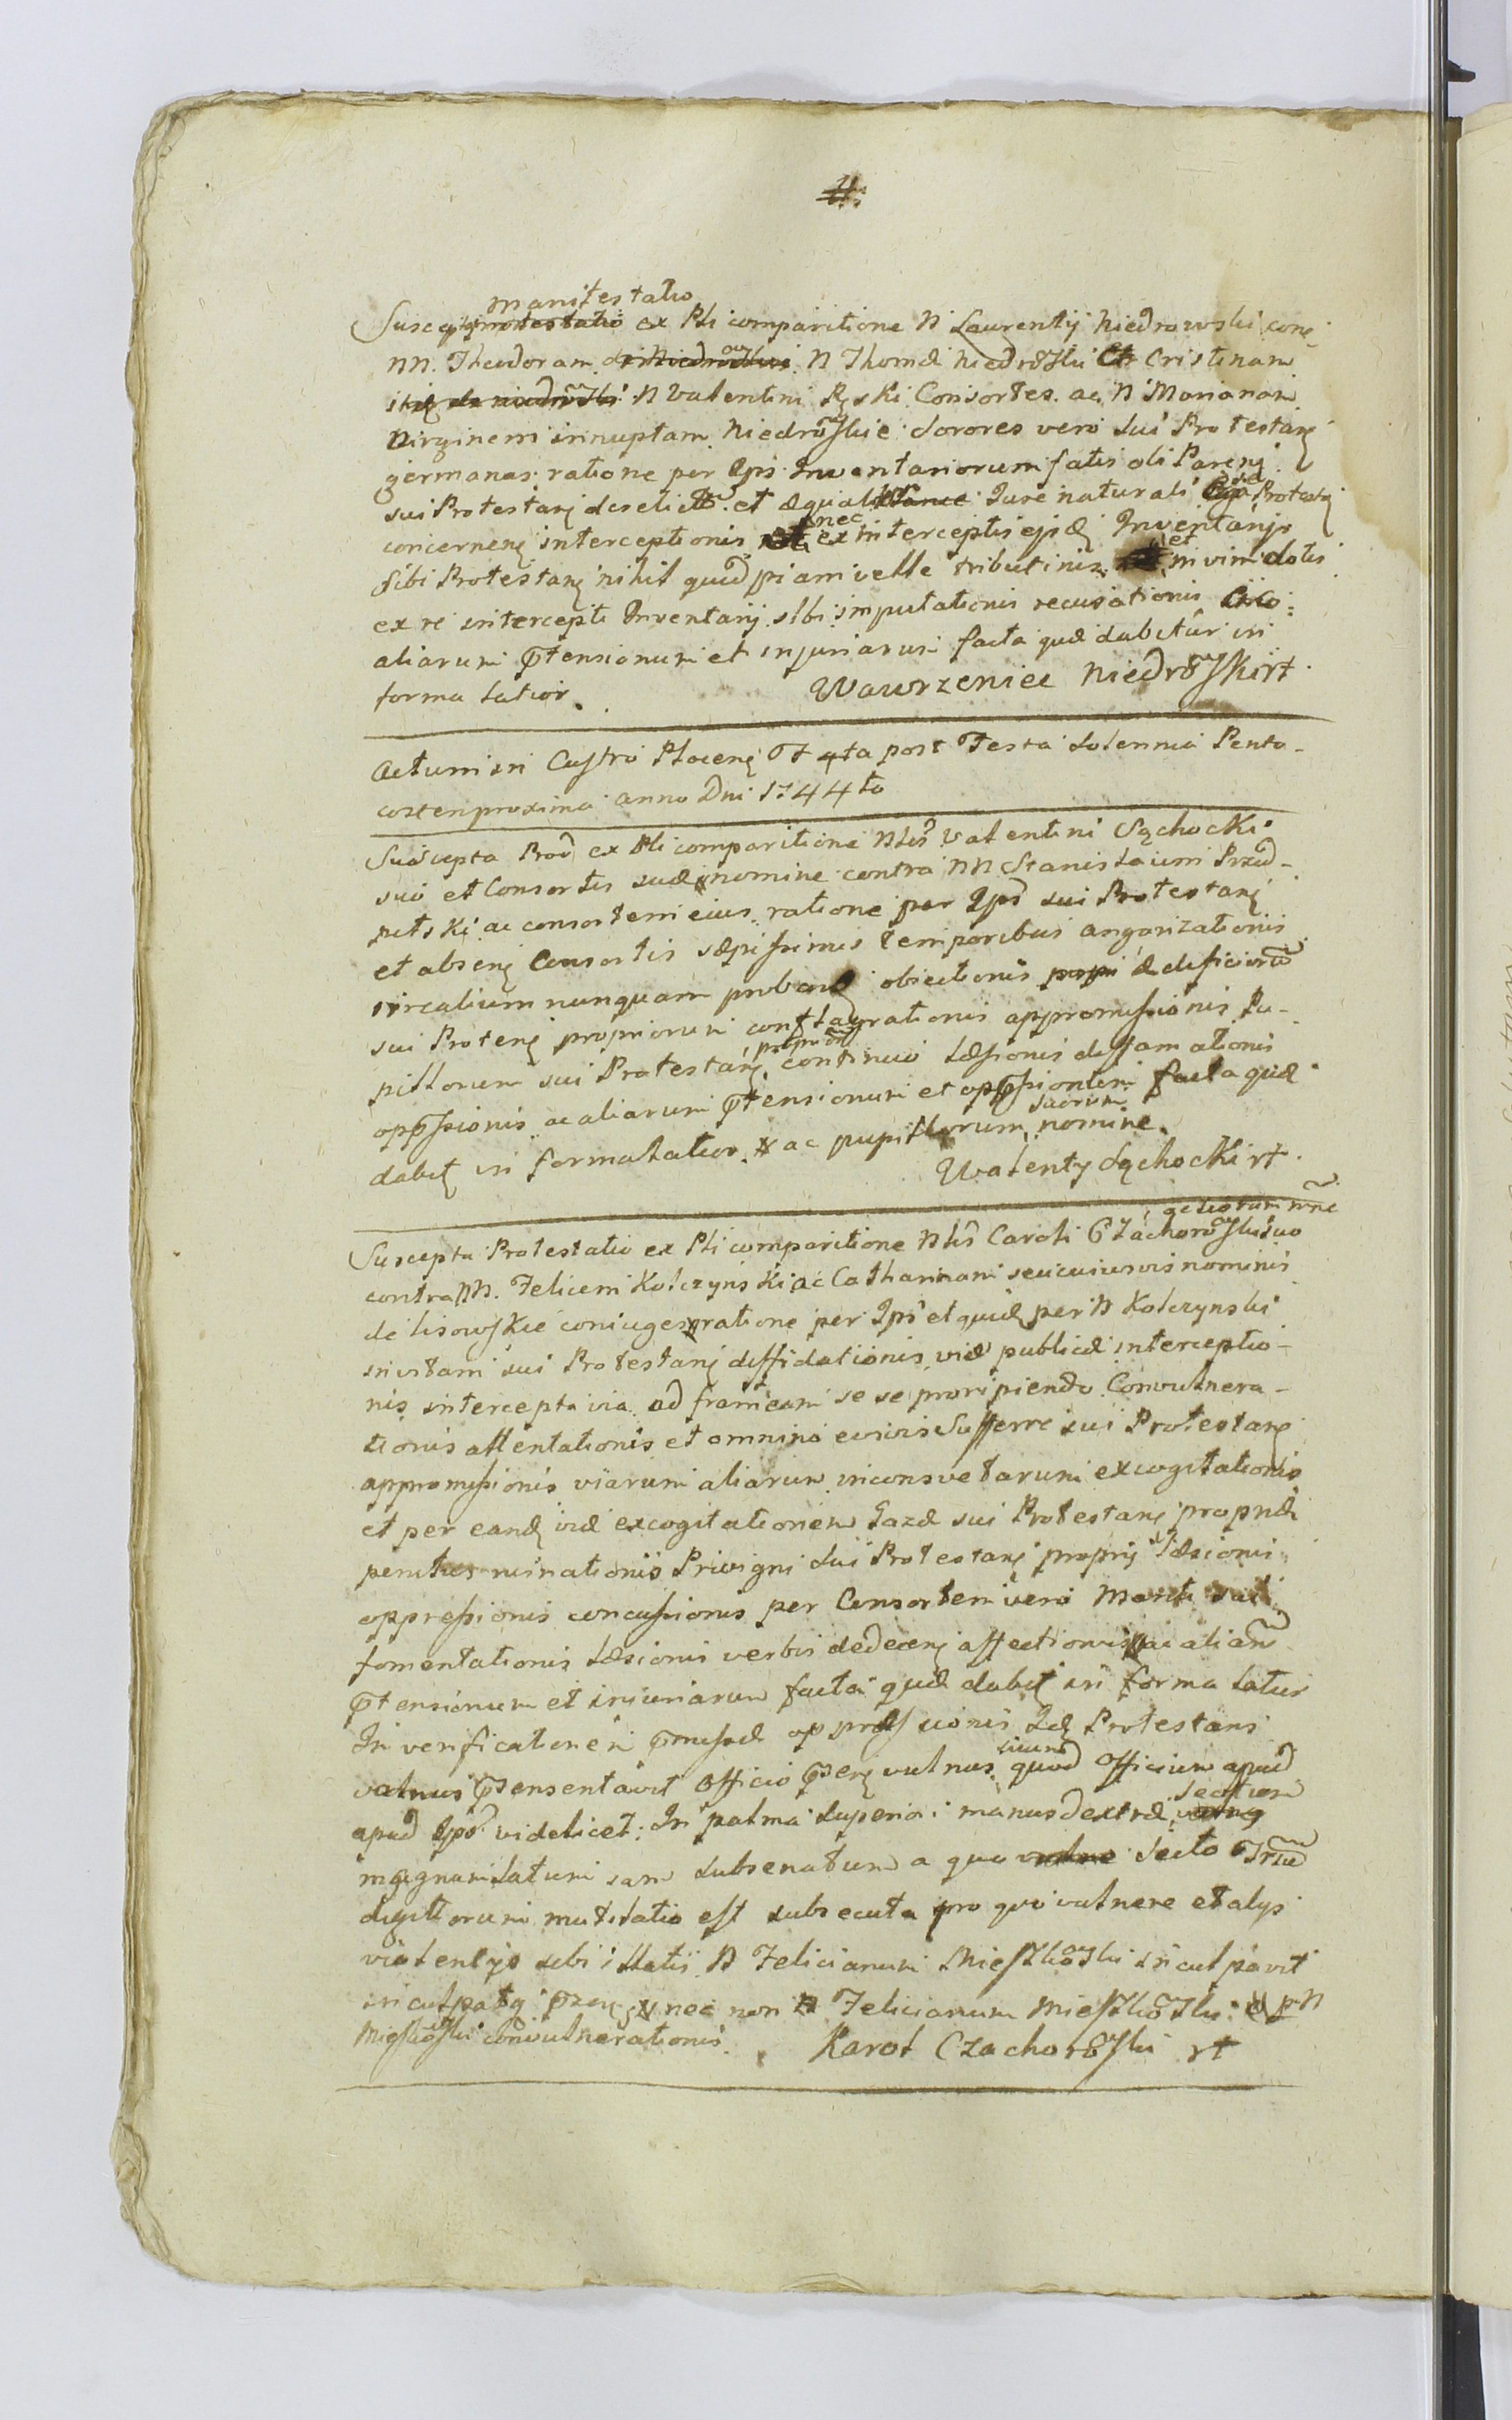 manifestatio
Suscepta protestatio ex Pli comparitione N Laurentij Niedrowski con
NN. Theodoram de Niedrowskie N Thomæ Niedrowski et Cristinam
N Valentini Ryski Consortes. ac N Mariana
Virginem innuptam Niedrowskie Sorores vero sui Protestan
germanas ratione per Ips Inventariorum fatis oli Paren
sui Protestan derelict et æquali Jure naturali Protestan
concernen interceptionis nec ex interceptis ejsd Inventarijs
sibi Protestan nihil quidpiam velle tributinis et in vim dotis
ex re intercepti Inventarij sibi imputationis recusationis
aliarum ptensionum et injuriarum facta quæ dabitur in
forma latior. Wawrzeniec Niedrowski rt
Actum in Castro Plocen F 4ta post Festa Solennia Pente-
costen proxima anno Dni 1744to
Suscepta Prod ex Pli comparitione Nbis Valentini Sąchocki
suo et Consortis suæ nomine contra NN Stanislaum Przed-
petski ac consortem eius ratione per Ips sui Protestan
et absen Consortis sæpissimis temporibus angarizationis
circalium nunquam proband obiectionis ædificior
sui Proten propriorum conflagrationis appromissionis Pu-
pillorum sui Protestan proprior continuo læsionis diffamationis
oppssionis ac aliarum ptensionum et oppssionum facta quæ
dabit in forma latior. ac pupillorum suorum nomine.
Walenty Sąchocki rt.
Suscepta Protestatio ex Pli comparitione Nbis Caroli Czachorowski suo
contra NN. Felicem Kolczynski ac Catharinam seu cuiusvis nominis
de Lisowskie coniuges ratione per Ips et quid per N Kolczynski
in vitam sui Protestan diffidationis viæ publicæ interceptio-
nis intercepta via ad frameam se se proripiendo Convulnera-
tionis attentationis et omnino e vivis Sufferre sui Protestan
appromissionis viarum aliarum inconsvetarum excogitationis
et per eand viæ excogitationem Gazæ sui Protestan propriæ
penitus ruinationis Privigni sui Protestan proprij læsionis
oppressionis concussionis per Consortem vero Mariti sui
fomentationis læsionis verbis dedecen affectionis ac aliar
ptensionum et iniuriarum facta quæ dabit in forma latior
In verificationem pmissæ oppræssionis Id Protestans
vulnus psensentavit Officio psen vulnus suum quod Officium apud
apud Ips videlicet: In palma superiori manus dextræ sectum
magnum latum iam subsenatum a quo secto Trium
digitorum mutilatio est subsecuta pro quo vulnere et alys
violentijs sibi illatis N Felicianum Mieszkowski inculpavit
inculpatq psen nec non N Felicianum Mieszkowski p N
Mieszkowski convulnerationis. Karol Czachorowski rt